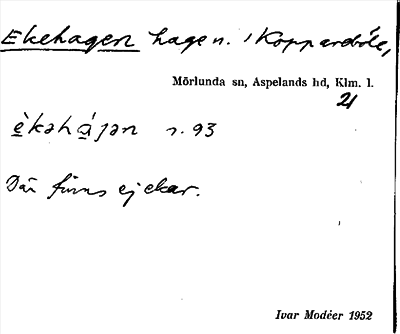 Ekehagen hage n. i Koppareböle,
Mörlunda sn, Aspelands hd, Klm. l.
21
èkəhájən s. 93
Där finns ej ekar.
Ivar Modéer 1952